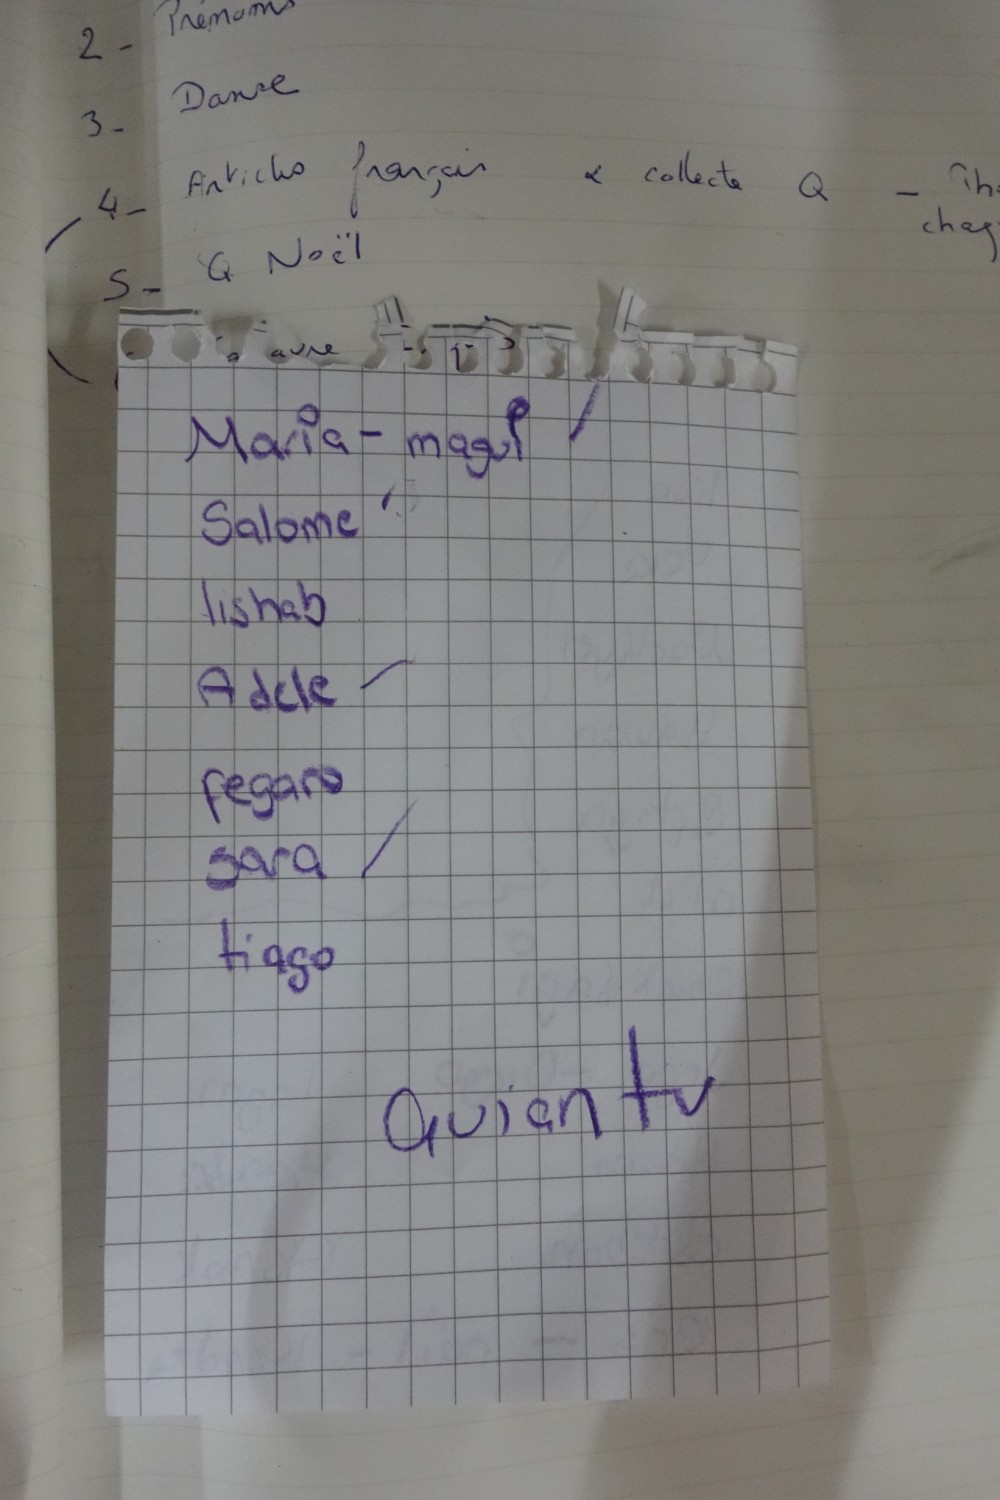 2 - Prénoms
3 - Danse
4 - Articles français & collecte Q -
5 - Q Noël
Maria - magui
Salome
lishab
Adele
pegaro
sara
tiago
Quian tv